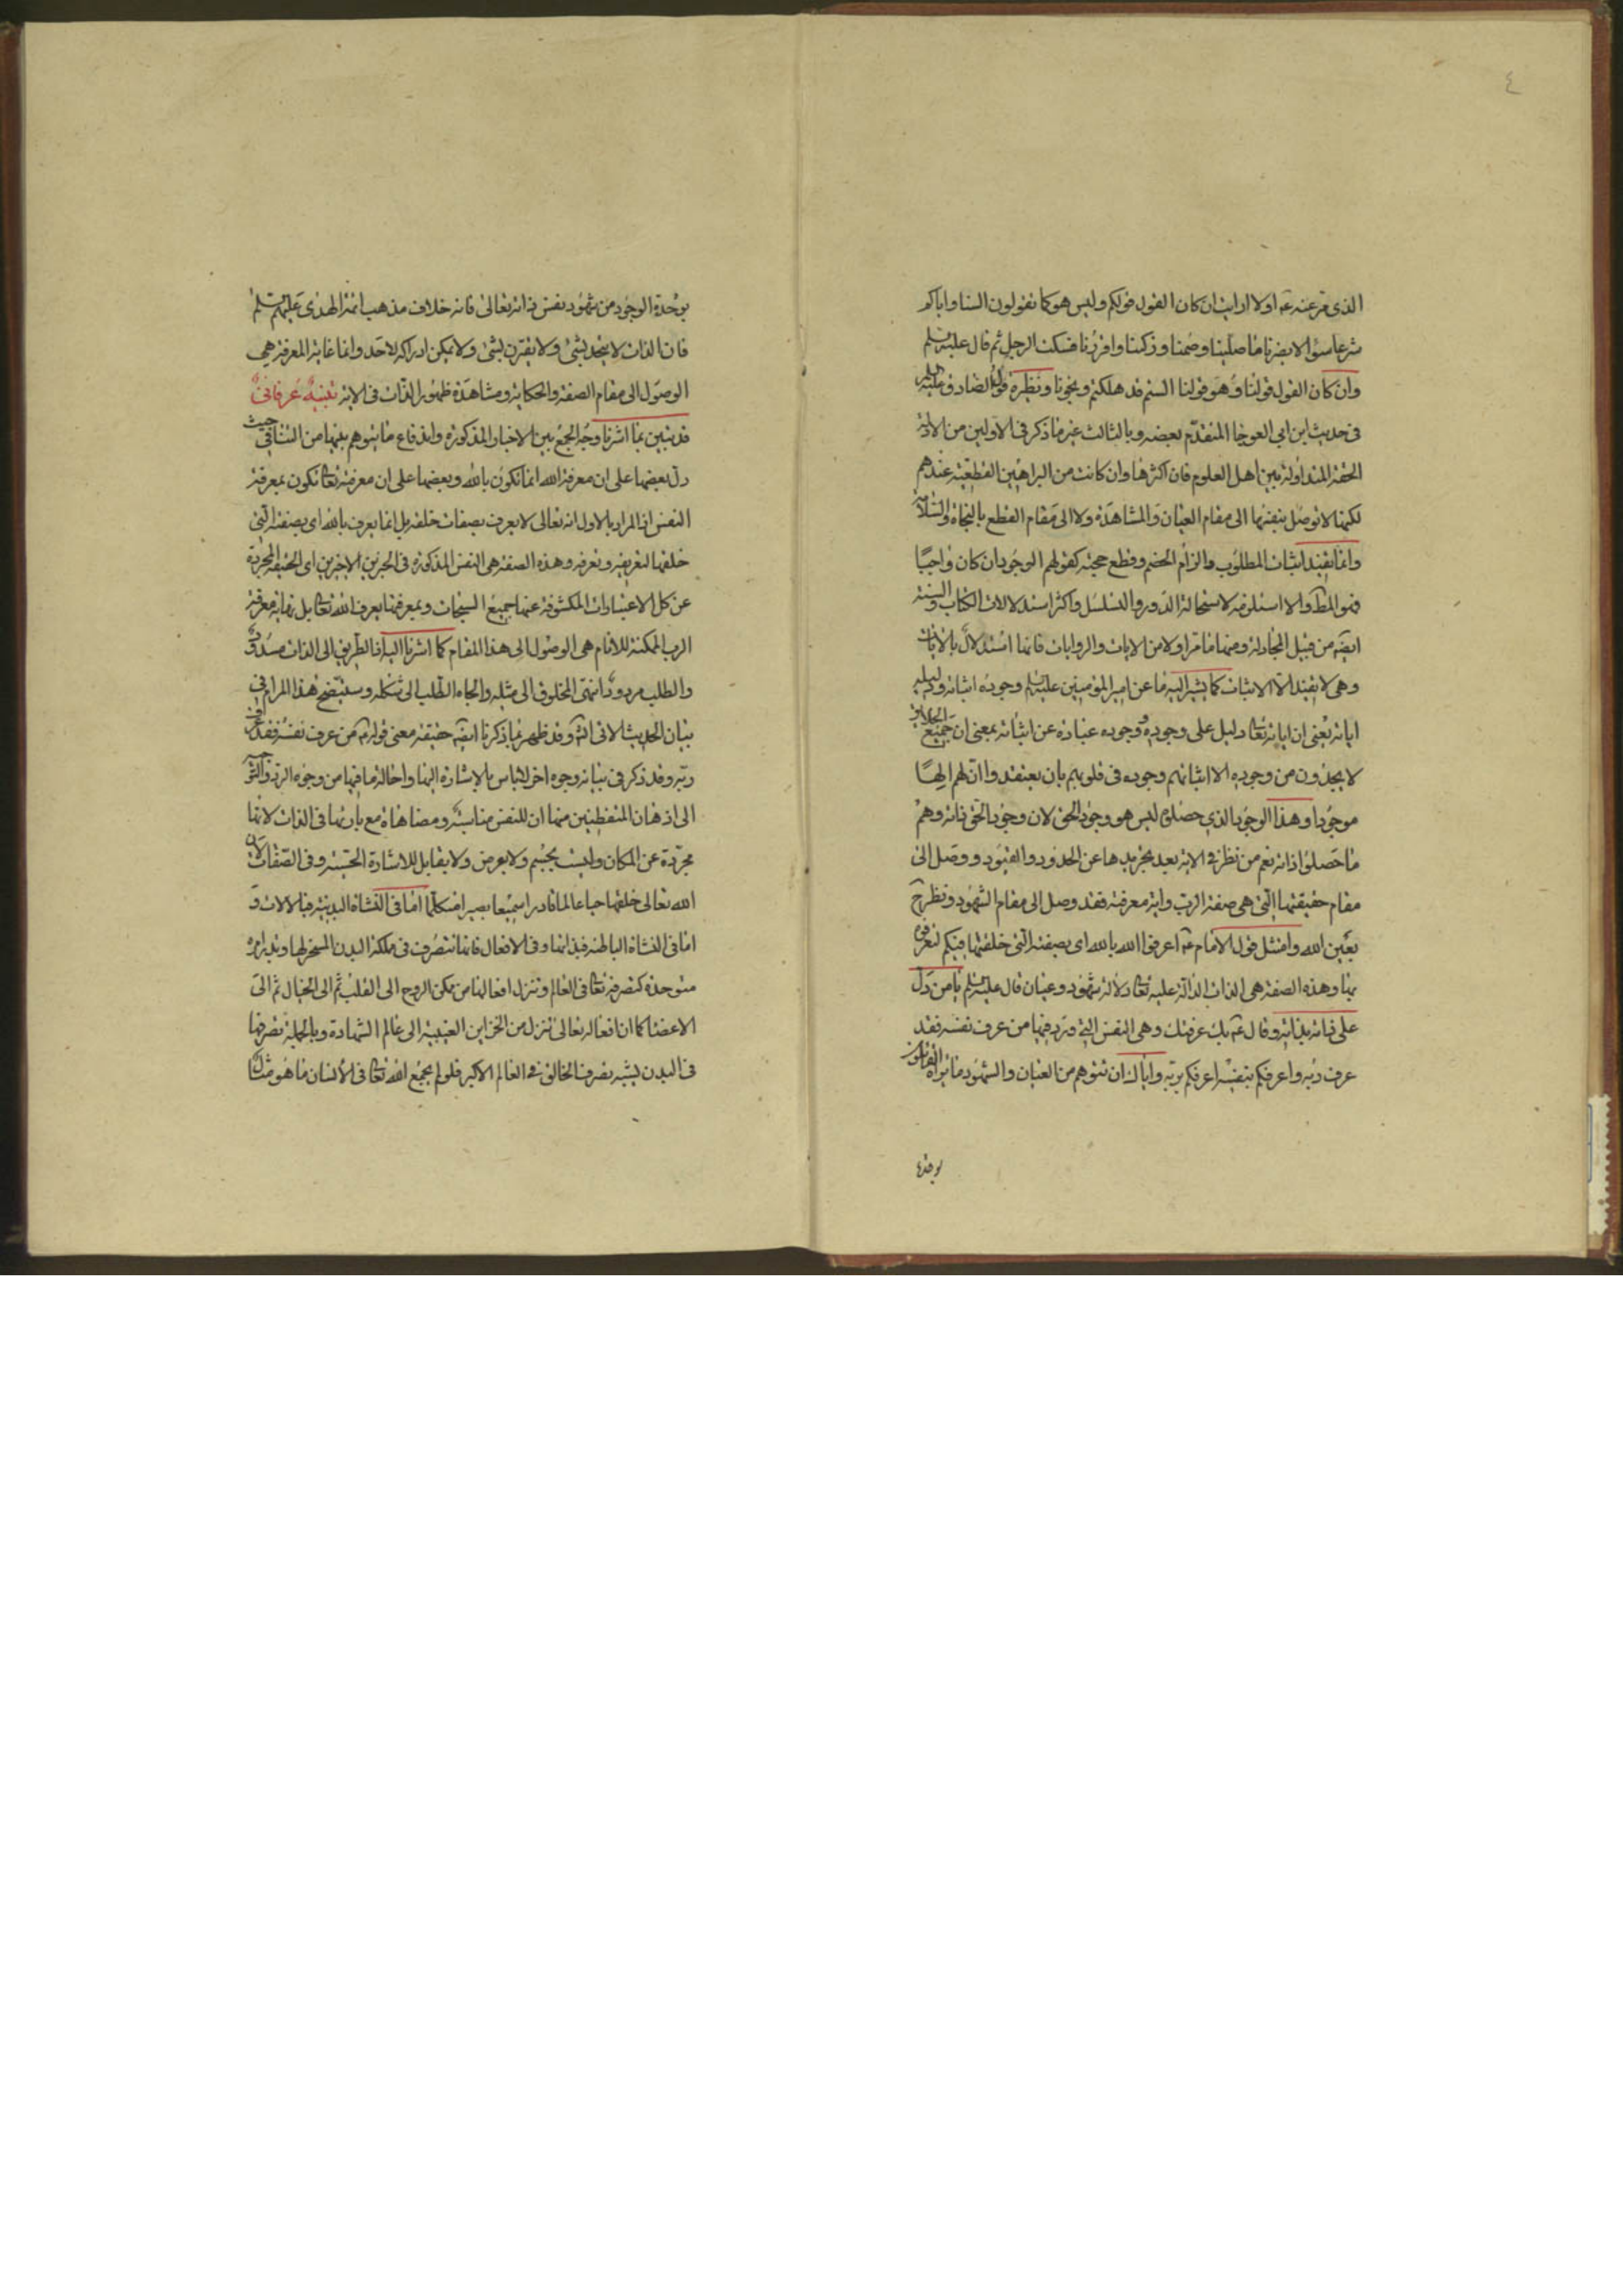 ٤
الذى مر عنه عم اولا ارايت ان كان القول قولكم وليس هو كما تقولون السنا واياكم
شرعا سوا لا يضرنا ما صلينا وصمنا وزكينا واقررنا فسكت الرجل ثم قال عليه السلم
وان كان القول قولنا وهو قولنا الستم قد هلكتم ونجونا ونظيره قول الصادق عليه السلم
فى حديث ابن ابى العوجا المتقدم بعضه وبالثالث غير ما ذكر فى الاولين من الادلة
الحقة المتداولة بين اهل العلوم فان اكثرها وان كانت من البراهين القطعية عندهم
لكنها لا توصل بنفسها الى مقام العيان والمشاهدة ولا الى مقام القطع بالنجاة والسلامة
وانما يفيد اثبات المطلوب والزام الخصم وقطع حجته كقولهم الوجود ان كان واجبًا
فهو المط والا استلزمه لاستحالة الدور والتسلسل واكثر استدلالات الكتاب والسنة
ايضا من قبيل المجادلة ومنها ما مر اولا من الايات والروايات فانها استدلال بالاثبات
وهى لا يفيد الا الاثبات كما يشير اليه ما عن امير المؤمنين عليه السلم وجوده اثباته ودليله
اياته يعنى ان اياته تعا دليل على وجوده ووجوده عبارة عن اثباته بمعنى ان جميع الخلايق
لا يجدون من وجوده الا اثباتهم وجوده فى قلوبهم بان يعتقدوا ان لهم الهًا
موجودا وهذا الوجود الذى حصلوه ليس هو وجود الحق لان وجود الحق ذاته وهم
ما حصلوا ذاته نعم من نظر فى الاية بعد تجريدها عن الحدود والقيود ووصل الى
مقام حقيقتها التى هى صفة الرب واية معرفته فقد وصل الى مقام الشهود ونظر ح
بعين الله وامتثل قول الامام عم اعرفوا الله بالله اى بصفته التى خلقها فيكم لتعرفوه
بها وهذه الصفة هى الذات الدالة عليه تعا دلالة شهود وعيان قال عليه السلم يا من دل
على ذاته بذاته وقال عم بك عرفتك وهى النفس التى ورد فيها من عرف نفسه فقد
عرف ربه واعرفكم بنفسه اعرفكم بربه واياك ان تتوهم من العيان والشهود ما يراه القائلون
بوحدة
بوحدة الوجود من شهود نفس ذاته تعالى فانه خلاف مذهب ائمة الهدى عليهم السلم
فان الذات لا يتحد بشئ ولا يقترن بشئ ولا يمكن ادراكه لاحد وانما غاية المعرفة هى
الوصول الى مقام الصفة والحكاية ومشاهدة ظهور الذات فى الاية تنبيه عرفانى
قد تبين بما اشرنا وجه الجمع بين الاخبار المذكورة واندفاع ما يتوهم بينها من التنافى حيث
دل بعضها على ان معرفة الله انما تكون بالله وبعضها على ان معرفته تعا تكون بمعرفة
النفس اذ المراد بالاول انه تعالى لا يعرف بصفات خلقه بل انما يعرف بالله اى بصفته التى
خلقها لتعريفه وتعرفه وهذه الصفة هى النفس المذكورة فى الخبرين الاخيرين اى الحقيقة المجردة
عن كل الاعتبارات المكشوفة عنها جميع السبحات وبمعرفتها يعرف الله تعا بل نهاية معرفة
الرب الممكنة للانام هى الوصول الى هذا المقام كما اشرنا اليه اذ الطريق الى الذات مسدود
والطلب مردود انتهى المخلوق الى مثله والجاه الطلب الى شكله وسيتضح هذا المرام فى
بيان الحديث الاتى انش وقد ظهر بما ذكرنا ايضا حقيقة معنى قوله عم من عرف نفسه فقد عرف
ربه وقد ذكر فى بيانه وجوه اخر لا باس بالاشارة اليها واحالة ما فيها من وجوه الرد والتوجيه
الى اذهان المتفطنين منها ان للنفس مناسبة ومضاهاة مع بارئها فى الذات لانها
مجردة عن المكان وليست بجسم ولا بعرض ولا يقابل للاشارة الحسية وفى الصفات لان
الله تعالى خلقها حيا عالما قادرا سميعا بصيرا متكلما اما فى النشاة البدنية فبالالات و
اما فى النشاة الباطنة فبذاتها وفى الافعال فانها تتصرف فى مملكة البدن المسخر لها وتدابيره
متوحدة كتصرفه تعا فى العالم وتنزل افعالها من مكمن الروح الى القلب ثم الى الخيال ثم الى
الاعضا كما ان افعاله تعالى تنزل من الخزاين الغيبية الى عالم الشهادة وبالجملة تصرفها
فى البدن يشبه تصرف الخالق فى العالم الاكبر فلو لم يجمع الله تعا فى الانسان ما هو مثال